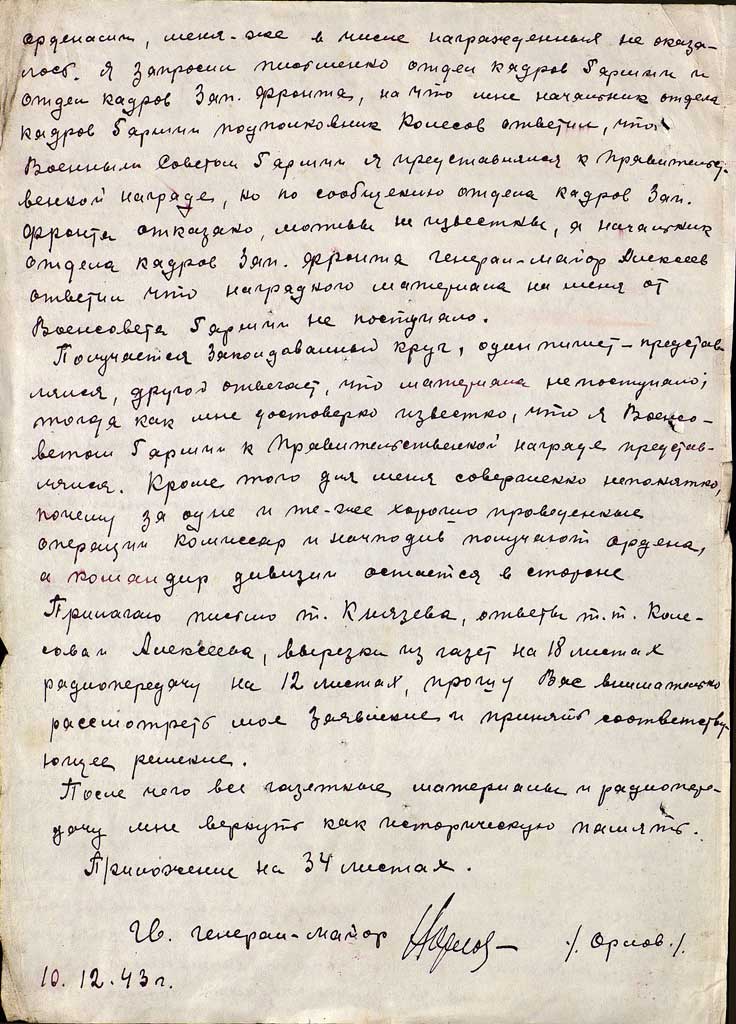 орденами, меня-же в числе награжденных не оказа-
лось. Я запросил письменно отдел кадров Гармии и
отдел кадров Зап. фронта, на что мне начальник отдела
кадров Гармии подполковник Колесов ответил, что
Военным Советом Гармии я представлялся к Правительст-
венной награде, но по сообщению отдела кадров Зап.
фронта отказано, мотивы не известны, а начальник
отдела кадров Зап. Фронта генерал-майор Алексеев
ответил что наградного материала на меня от
Военсовета Гармии не поступало.
Получается Заколдованный круг, один пишет - представ
лялся, другой отвечает, что материала непоступало;
тогда как мне достоверно известно, что я Военсо-
ветом Гармии к Правительственной награде представ-
лялся. Кроме того для меня совершенно непонятно,
почему за одне и те-же хорошо проведенные
операции комиссар и начподив получают ордена,
а командир дивизии остается в стороне
Прилагаю письмо т. Князева, ответы т.т. Коле-
сова и Алексеева, вырезки из газет на 18 листах
радиопередачу на 12 листах, прошу Вас внимательно
рассмотреть мое Заявление и принять соответству-
ющее решение.
После чего все газетные материалы и радиопере-
дачу мне вернуть как историческую память.
Приложение на 34 листах.
Гв. генерал-майор Норлов /. Орлов./.
10. 12. 43 г.